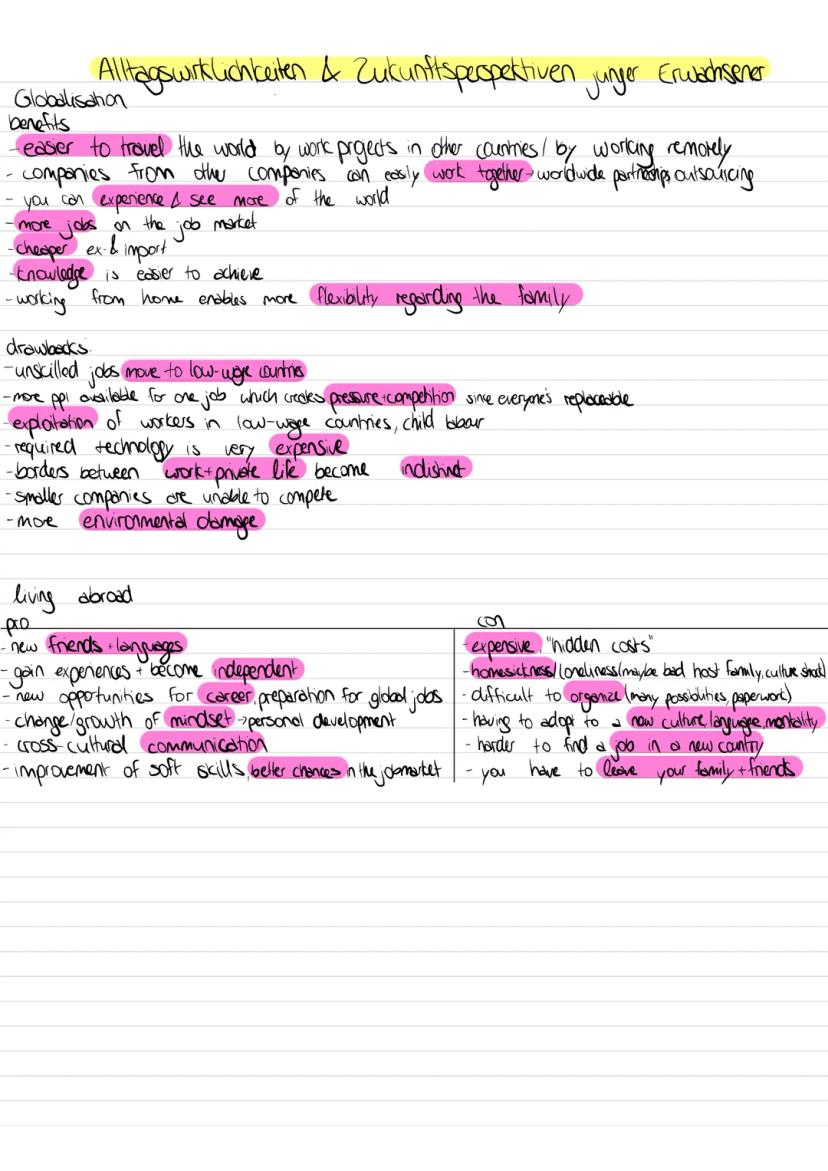 Alltagswirklichkeiten & Zukunftsperspektiven junger Erwachsener
Globalisation
benefits
- easier to travel the world by work projects in other countries / by working remotely
- companies from other companies can easily work together → worldwide partnerships, outsourcing
- you can experience & see more of the world
- more jobs on the job market
- cheaper ex- & import
- knowledge is easier to achieve
- working from home enables more flexibility regarding the family
drawbacks
- unscilled jobs move to low-wage countries
- more ppl available for one job which creates pressure + competition since everyone's replaceable
- exploitation of workers in low-wage countries, child labour
- required technology is very expensive
- borders between work + private life become indistinct
- smaller companies are unable to compete
- more environmental damage
living abroad
pro
- new friends + languages
- gain experiences + become independent
- new opportunities for career, preparation for global jobs
- change/growth of mindset → personal development
- cross-cultural communication
- improvement of soft skills, better chances in the jobmarket
con
- expensive, "hidden costs"
- homesickness/loneliness (maybe bad host family, culture shock)
- difficult to organize (many possibilities, paperwork)
- having to adopt to a new culture, language, mentality
- harder to find a job in a new country
- you have to leave your family + friends